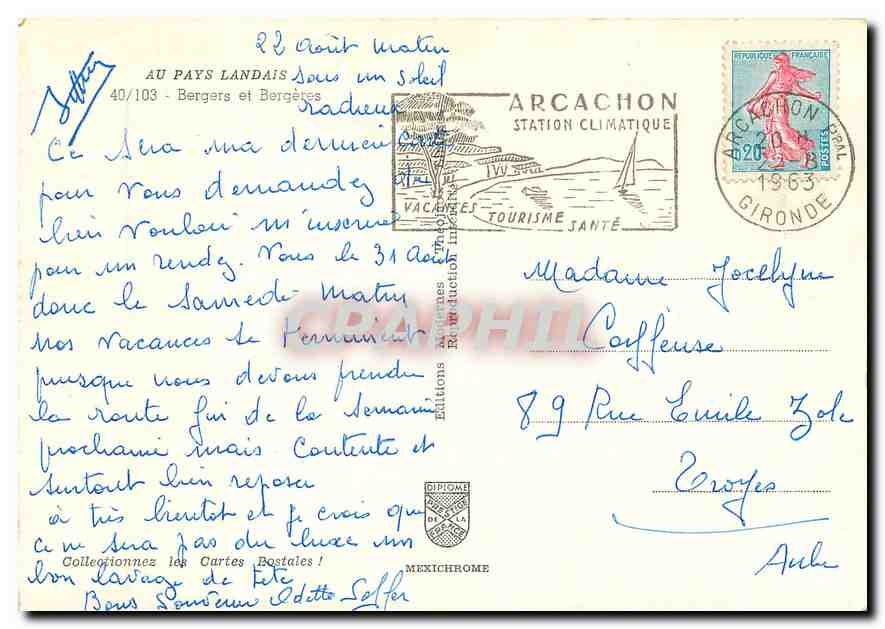 22 Août Matin
Sous un Soleil
radieux
AU PAYS LANDAIS
40/103 - Bergers et Bergères
Ce Sera ma dernière
pour Vous demander
bien Vouloir m'inscrire
pour un rendez-Vous le 31 Août
donc le Samedi Matin
nos Vacances Se Terminent
puisque nous devons prendre
la route fin de la Semaine
prochaine mais Contente et
Surtout bien reposée
à très bientôt et je crois que
ce ne sera pas du luxe un
bon lavage de tête
Bons Souvenirs Odette
Collectionnez les Cartes Postales !
Editions Modernes Théojac
Reproduction Interdite
DIPLOME
PRESTIGE
DE LA
FRANCE
MEXICHROME
CPAPHIL
ARCACHON
STATION CLIMATIQUE
VACANCES
TOURISME
SANTÉ
REPUBLIQUE FRANÇAISE
0,20
POSTES
ARCACHON PPAL
22-8
1963
GIRONDE
Madame Jocelyne
Coiffeuse
89 Rue Emile Zola
Troyes
Aube